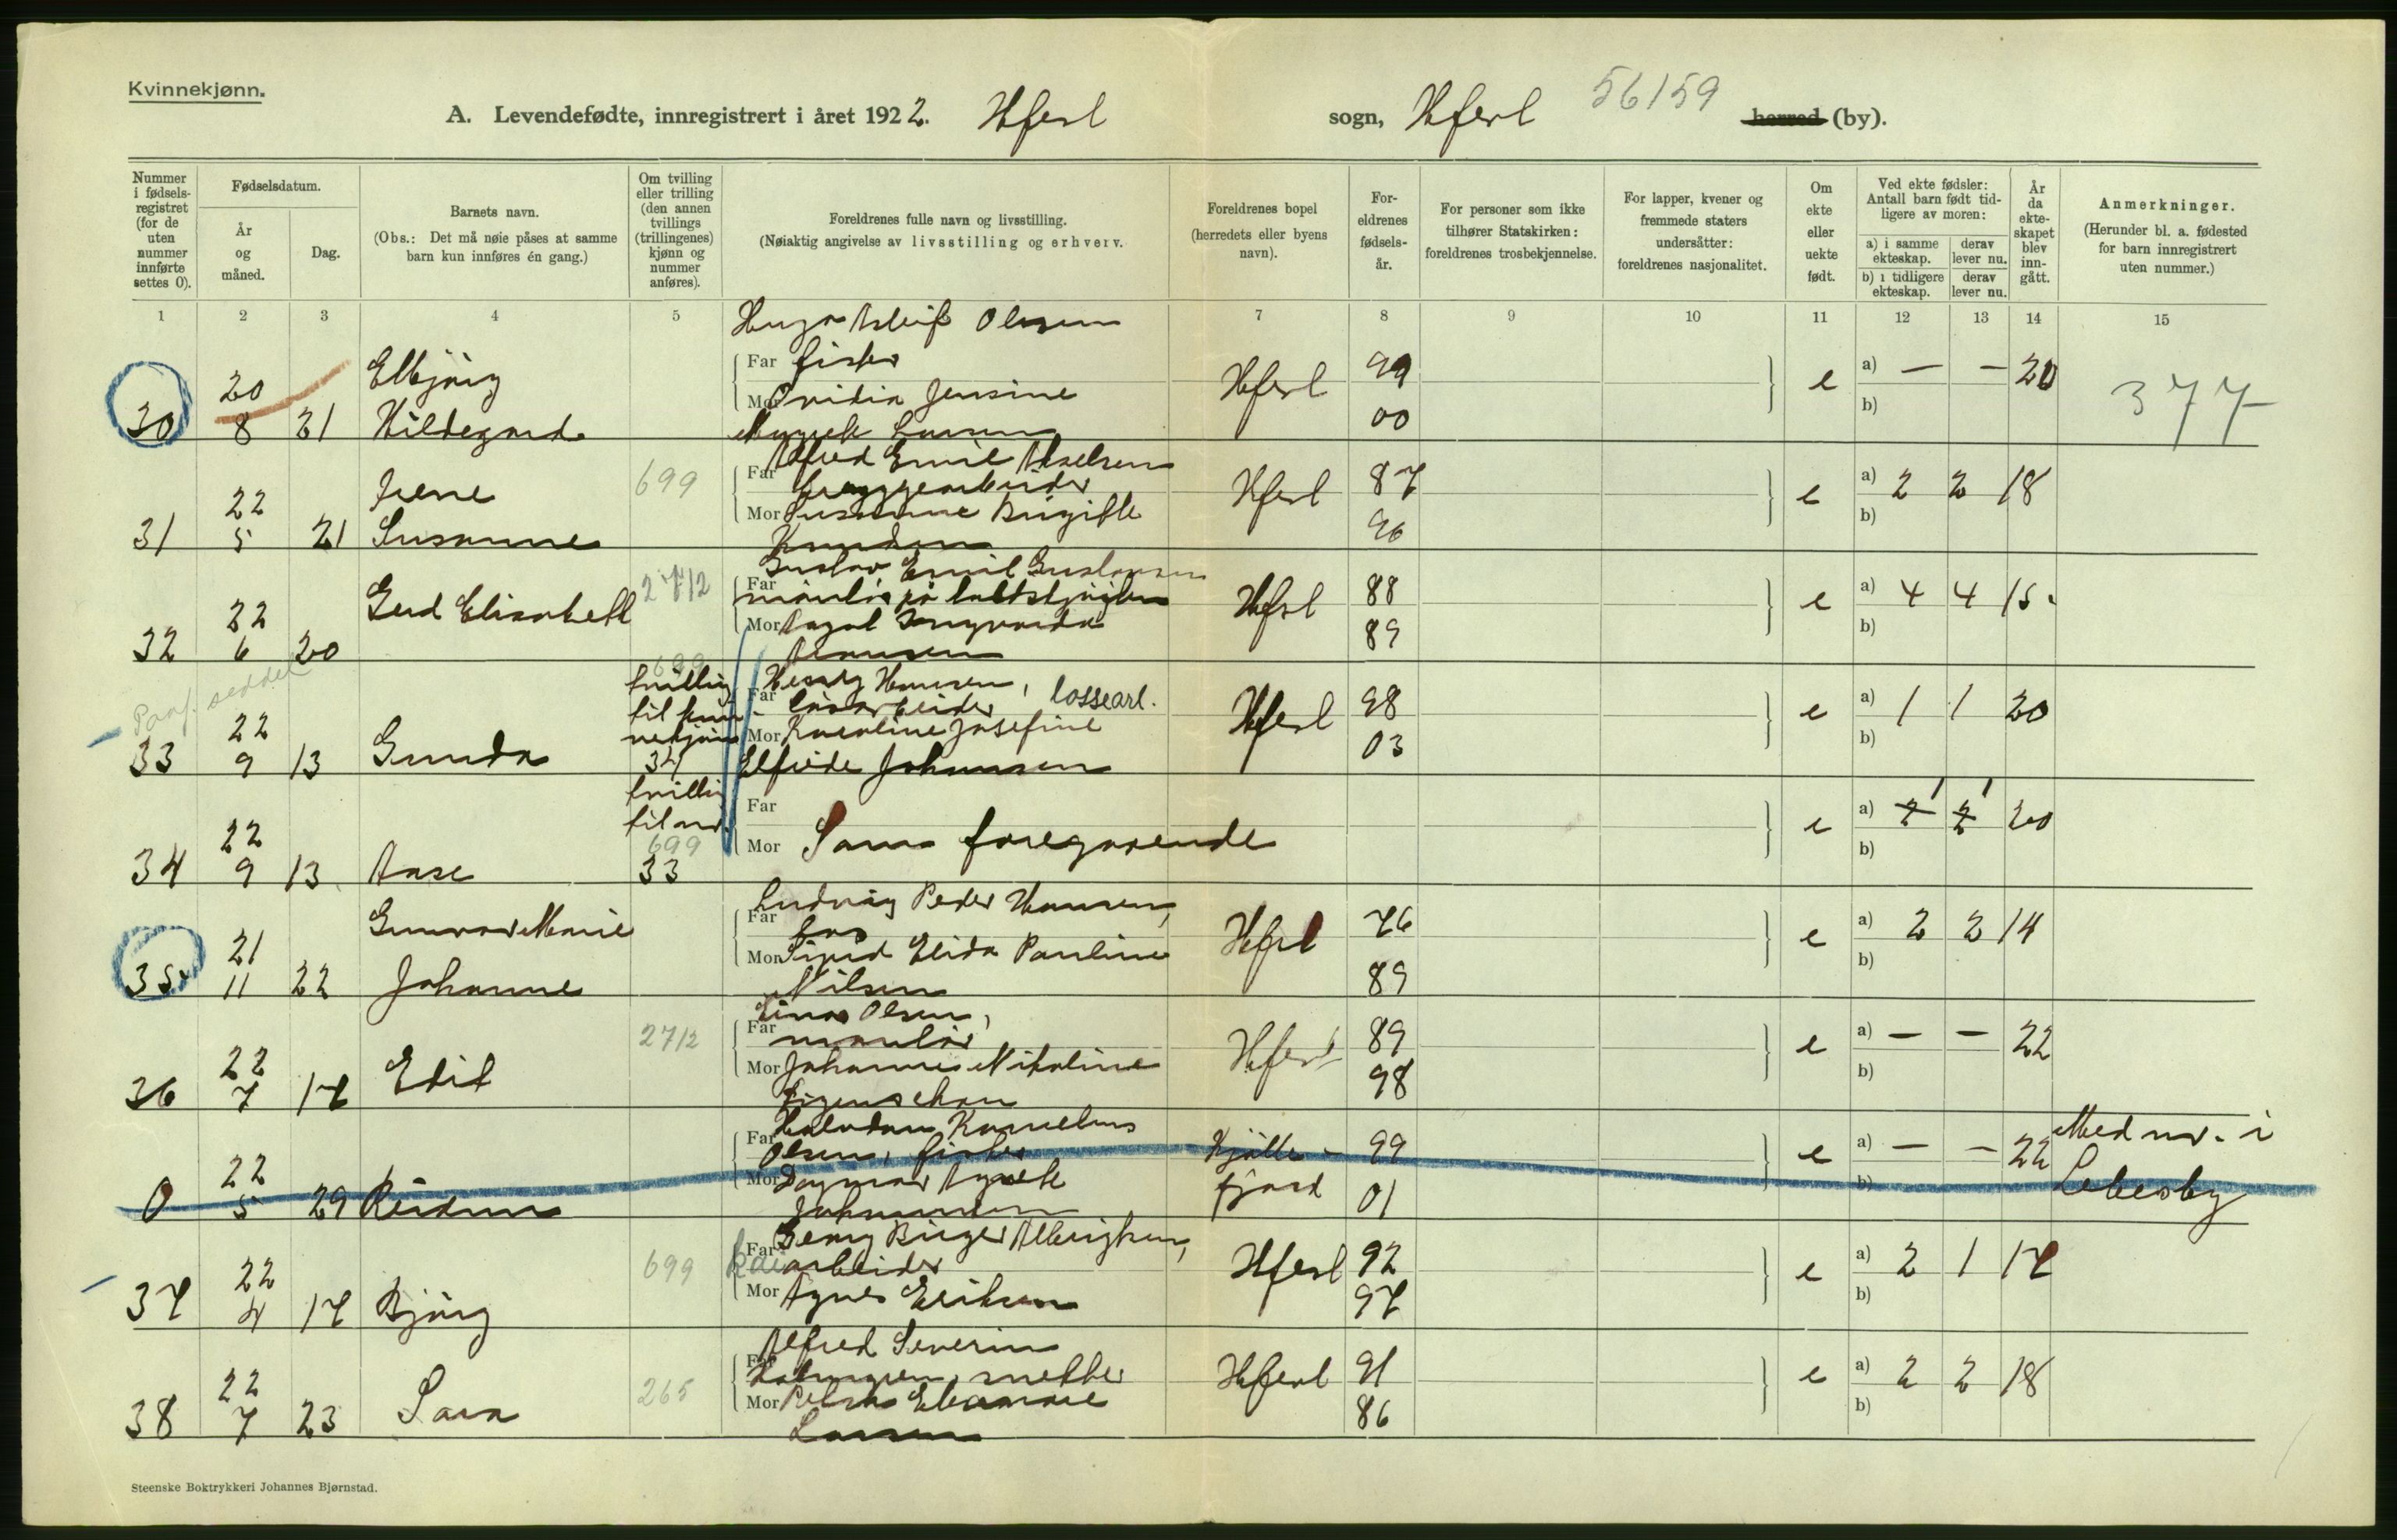 Kvinnekjønn.
A. Levendefødte, innregistrert i året 1922. Hfest sogn, Hfest 56159 herred (by).
Nummer i fødselsregistret (for de uten nummer innførte settes 0).
Fødselsdatum.
År og måned.
Dag.
Barnets navn.
(Obs.: Det må nøie påses at samme barn kun innføres én gang.)
Om tvilling eller trilling (den annen tvillings (trillingenes) kjønn og nummer anføres).
Foreldrenes fulle navn og livsstilling.
(Nøiaktig angivelse av livsstilling og erhverv.
Foreldrenes bopel (herredets eller byens navn).
Foreldrenes fødselsår.
For personer som ikke tilhører Statskirken: foreldrenes trosbekjennelse.
For lapper, kvener og fremmede staters undersåtter: foreldrenes nasjonalitet.
Om ekte eller uekte født.
Ved ekte fødsler: Antall barn født tidligere av moren:
a) i samme ekteskap. derav lever nu.
b) i tidligere ekteskap. derav lever nu.
År da ekteskapet blev inngått.
Anmerkninger.
(Herunder bl. a. fødested for barn innregistrert uten nummer.)
1 2 3 4 5 7 8 9 10 11 12 13 14 15
Hugo Olsen
30 20 8 21 Hildegard
Far fisker
Mor Ovidia Jensine
Larsen
Hfest 99 00 e a) — — 20 b) 377
31 22 5 21 Irene Susanne 699
Far Alfred Emil Akselsen
bryggearbeider
Mor Susanne Birgitte
Knudsen
Hfest 87 96 e a) 2 2 18 b)
32 22 6 20 Gerd Elisabeth 2712
Far Gustav Emil Gustavsen
Mor
Hfest 88 89 e a) 4 4 15. b)
seddel
33 22 9 13 Gunda 699 tvilling til kvinnekjøn 34
Far Henry Hansen,
løsarbeider lossearb.
Mor Karoline Josefine
Elfride Johansen
Hfest 98 03 e a) 1 1 20 b)
34 22 9 13 Aase tvilling til nr. 699 33
Far
Mor Samme foregaaende
e a) 2 1 2 1 20 b)
35 21 11 22 Gunvor Marie Johanne
Far Ludvig Peder Hansen,
Mor Sigrid Elida Pauline
Nilsen
Hfest 76 89 e a) 2 2 14 b)
36 22 7 17 Edit 2712
Far Einar Olsen,
montør
Mor Johanne Nikoline
Hfest 89 98 e a) — — 22 b)
0 22 5 29 Reidun
Far Halvdan Kornelius
Olsen, fisker
Mor Dagmar Agnete
Johannesen
Kjøllefjord 99 01 e a) — — 22 b) Med nr. i Lebesby
37 22 4 17 Bjørg 699
Far Georg Birger Albrigtsen,
kaiarbeider
Mor Agnes Eriksen
Hfest 92 97 e a) 2 1 17 b)
38 22 7 23 Sara 265
Far Alfred Severin
Holmgren, snekker
Mor Petra Eleonore
Larsen
Hfest 91 86 e a) 2 2 18 b)
Steenske Boktrykkeri Johannes Bjørnstad.